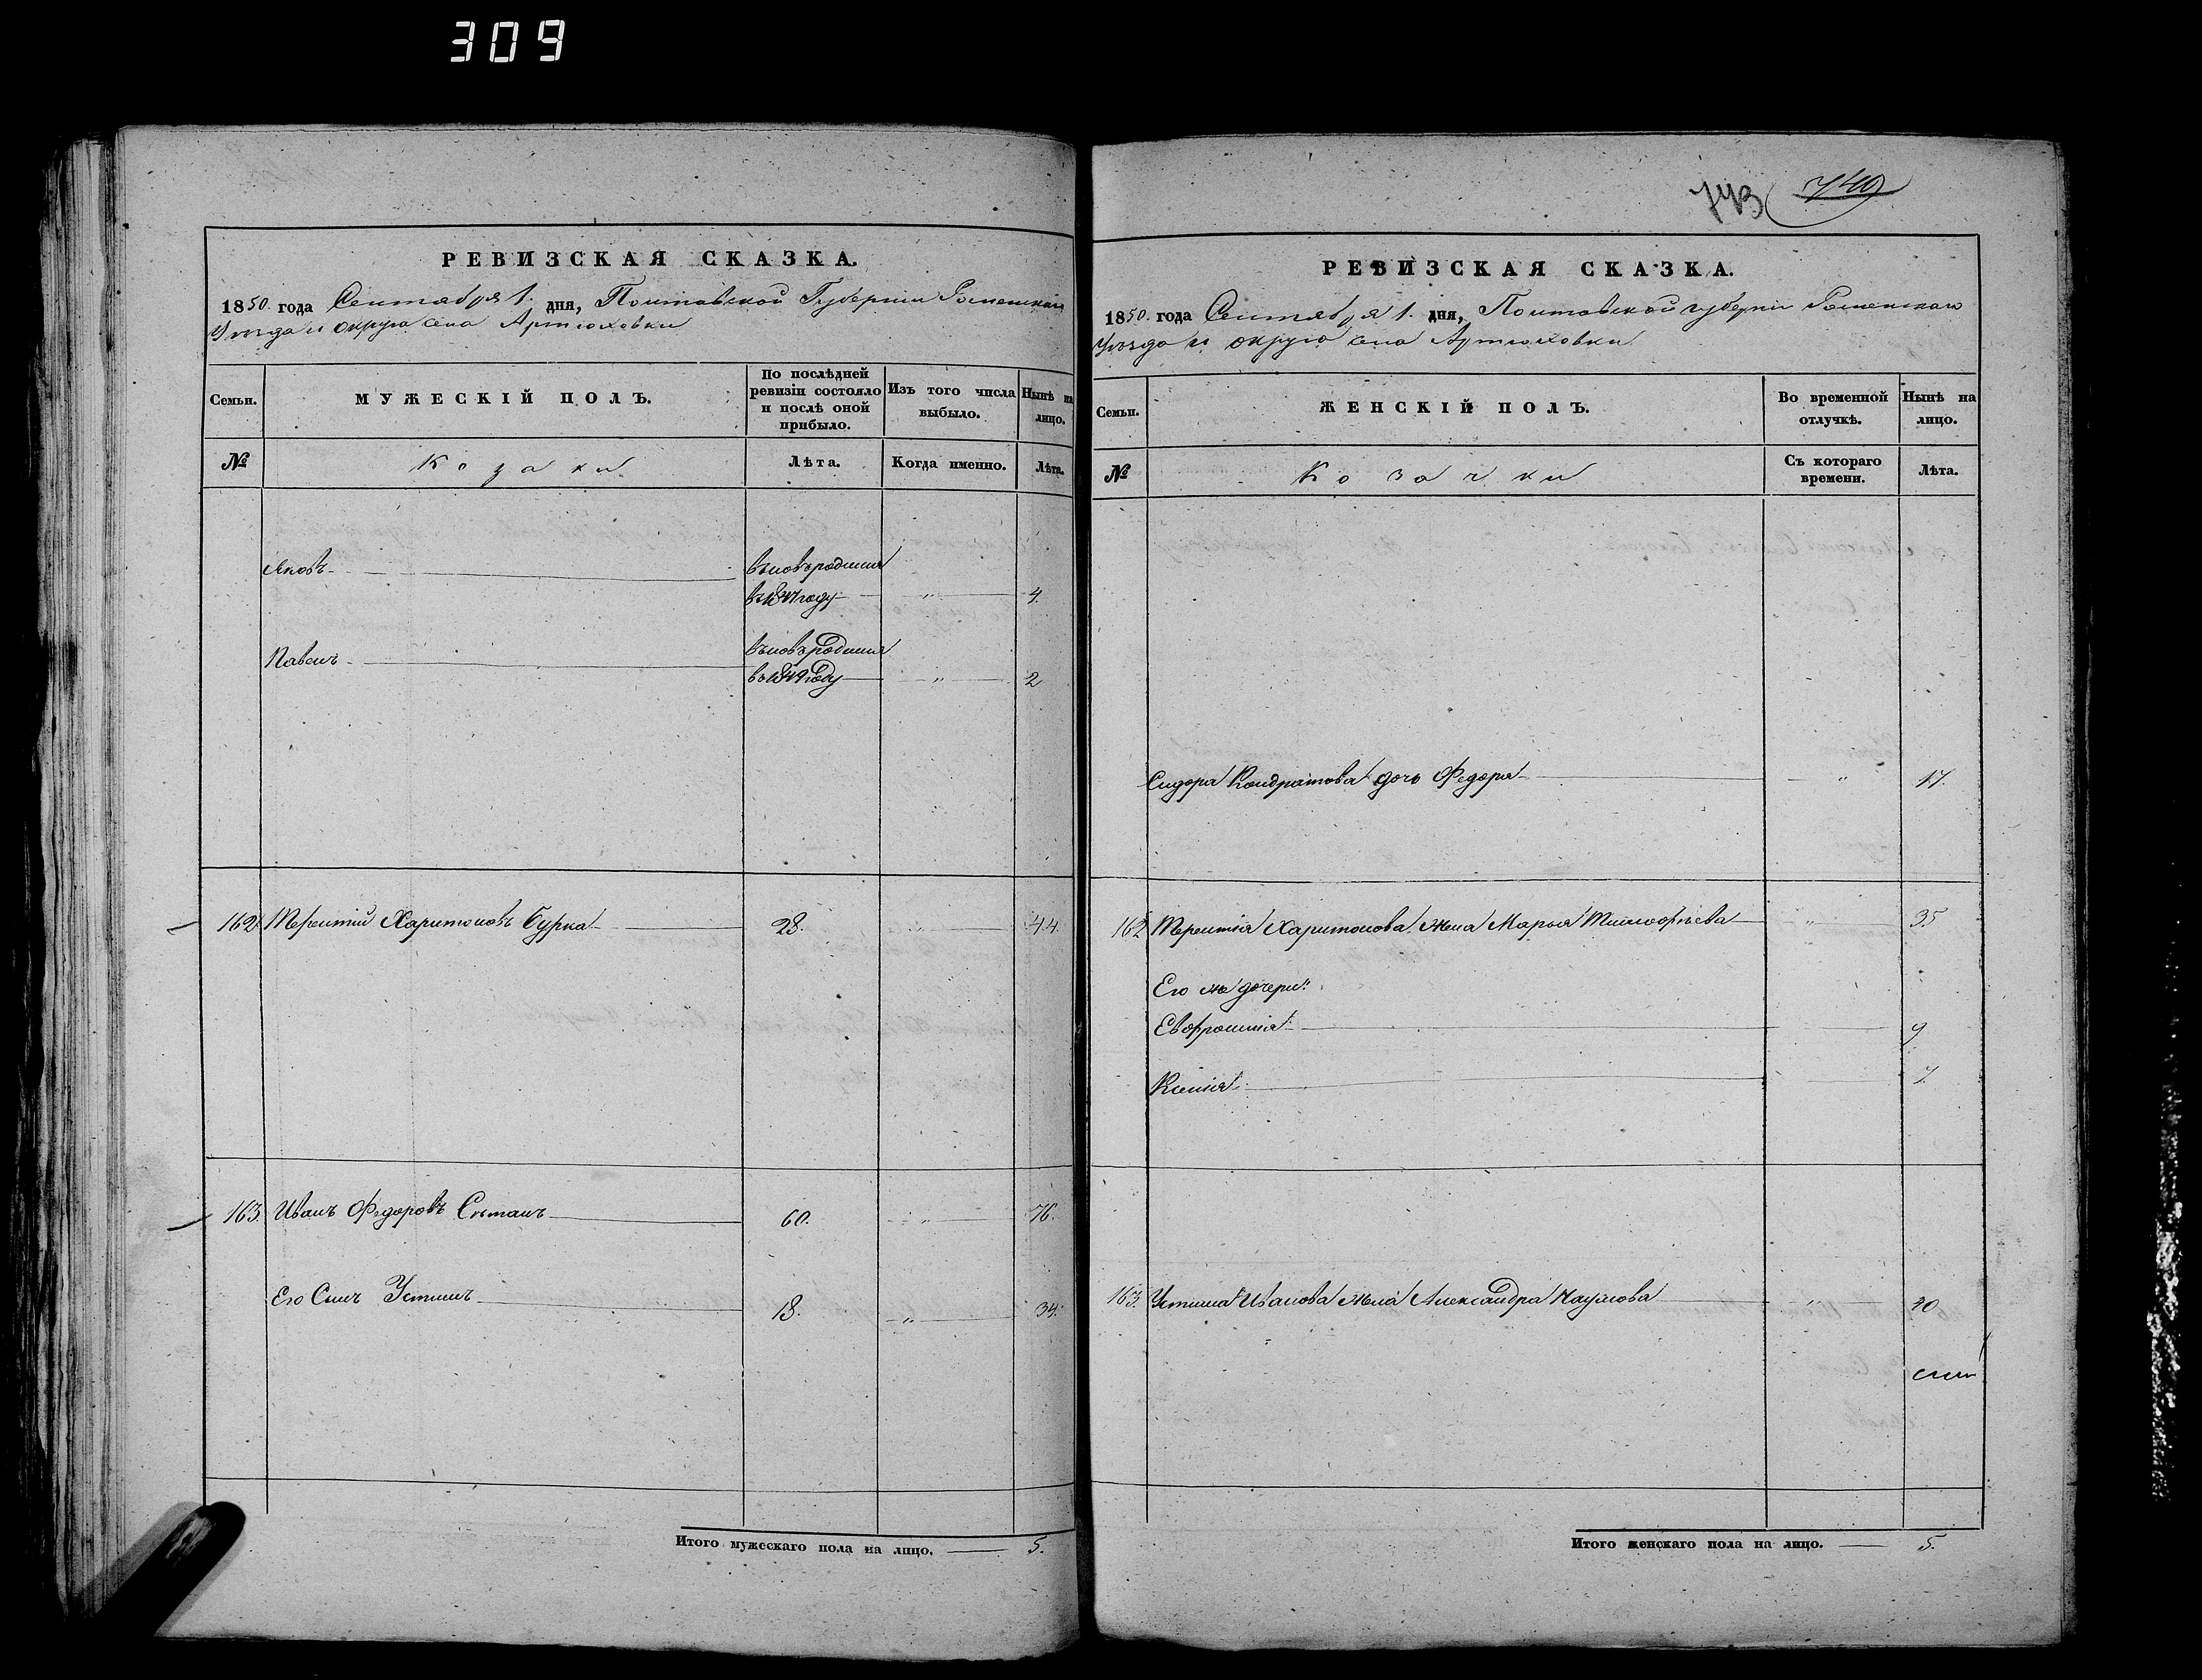 309
РЕВИЗСКАЯ СКАЗКА.
1850. года Сентября 1. дня, Полтавской Губернии Роменскаго
Уезда и округа села Артюховки
Семьи.
МУЖЕСКІЙ ПОЛЪ.
По послѣдней ревизіи состояло и послѣ оной прибыло.
Изъ того числа выбыло.
Нынѣ на лицо.
№
Козаки
Лѣта.
Когда именно.
Лѣта.
Яковъ
вновьродился
въ 1847 году " 4.
Павелъ
вновьродился
въ 1849 году " 2
162. Терентий Харитоновъ Бурка 28. " 44.
163. Иванъ Федоровъ Сытникъ 60. " 76.
Его Сынъ Устинъ 18. " 34.
Итого мужескаго пола на лицо. 5.
743 740
РЕВИЗСКАЯ СКАЗКА.
1850. года Сентября 1. дня, Полтавской губерніи Роменскаго
Уезда и округа села Артюховки
Семьи.
ЖЕНСКІЙ ПОЛЪ.
Во временной отлучкѣ.
Нынѣ на лицо.
№
Козачки
Съ котораго времени.
Лѣта.
Сидора Кондратова дочь Федора " 17.
162. Терентія Харитонова жена Марья Тимофѣева " 35
Его же дочери:
Евфросинія 9
Ксенія 7.
163. Устина Иванова жена Александра Наумова " 30
Итого женскаго пола на лицо. 5.